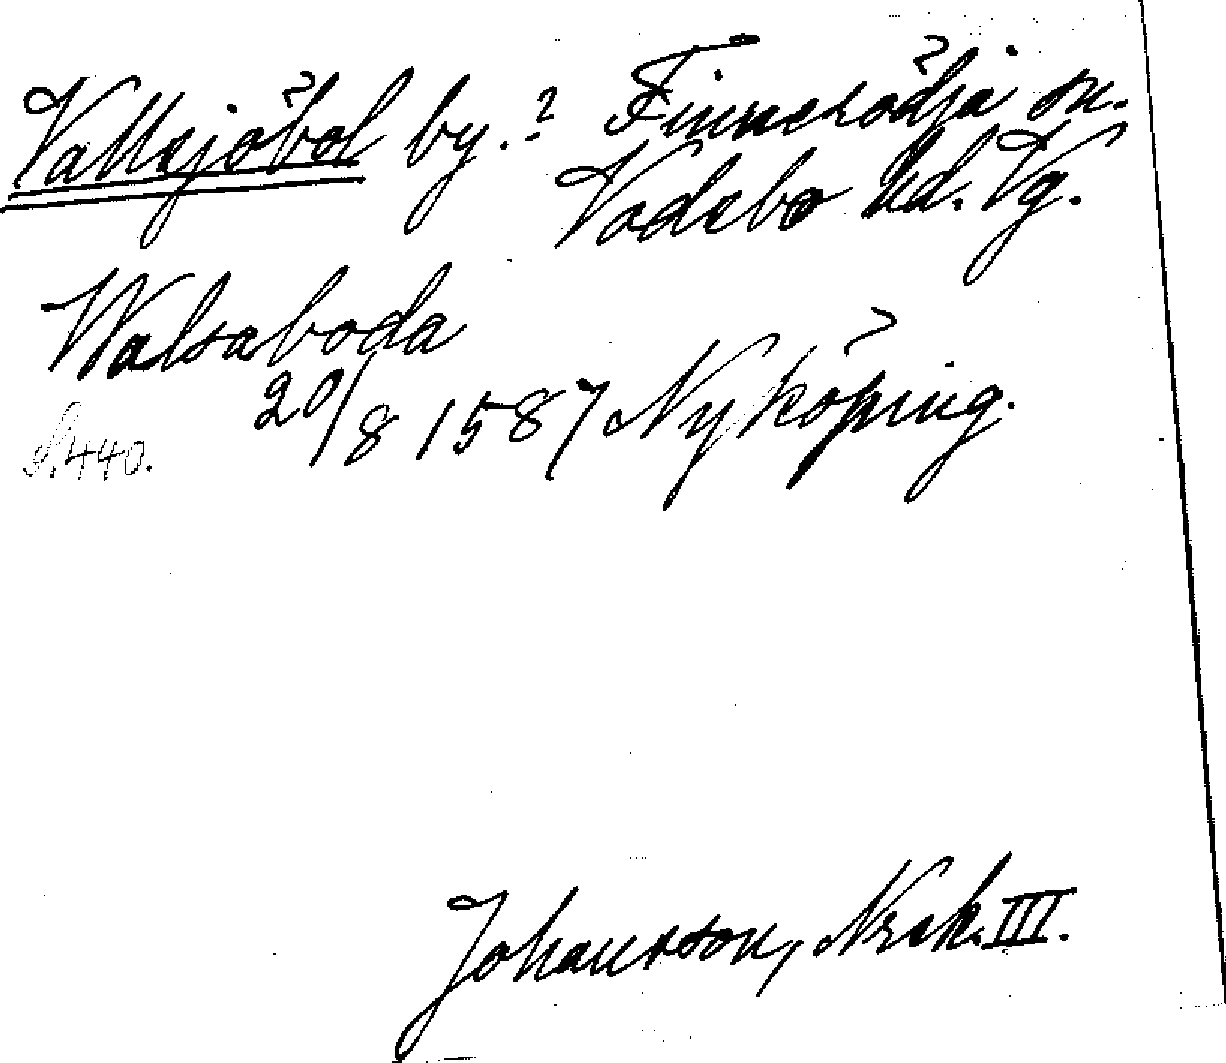 Vallsjöbol by.? Finnerödja sn.
Vadsbo hd. Vg.
Walsaboda
20/8 1587 Nyköping.
S. 440.
Johansson, Nrck. III.